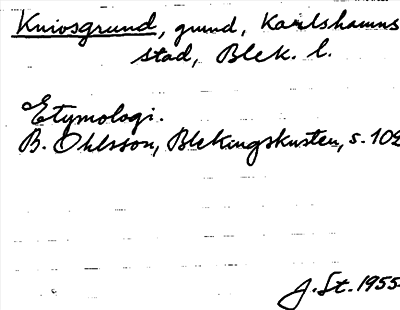 Kniosgrund, grund, Karlshamns
stad, Blek. l.
Etymologi.
B. Ohlsson, Blekingskusten, s. 102
J. St. 1955